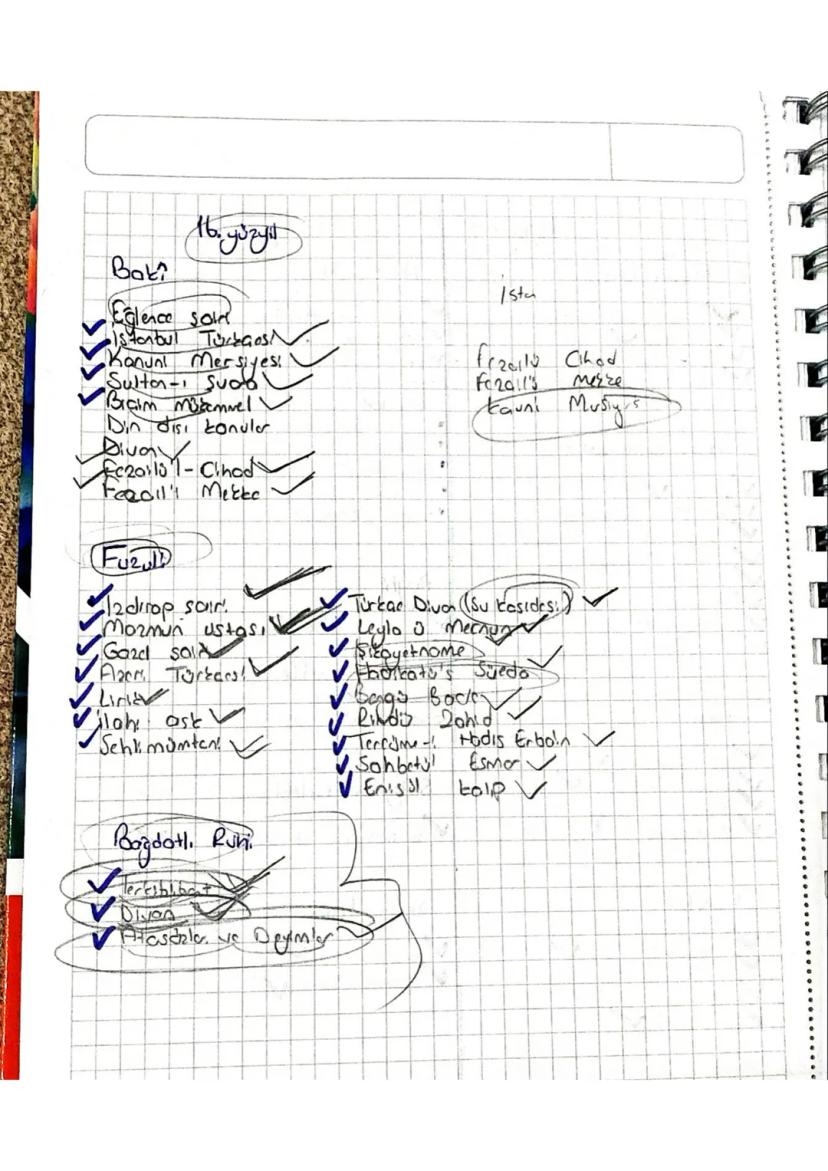 16. yüzyıl
Bakî
Eğlence şairi
İstanbul Türkçesi
Kanuni Mersiyesi
Sultan-ı Şuara
Biçim mükemmel
Din dışı konular
Divan
Fezailü'l-Cihad
Fezail'i Mekke
İstan
Fezailü Cihad
Fezail'i Mekke
Kanuni Mersiyesi
Fuzuli
Izdırap şairi
Mazmun ustası
Gazel şairi
Azeri Türkçesi
Lirik
ilahi aşk
Sehlimümteni
Türkçe Divan (Su kasidesi)
Leyla ü Mecnun
Şikayetname
Hadikatü's Süeda
Bengü Bade
Rindü Zahid
Tercüme-i Hadis Erbain
Sohbetül Esmar
Enisül kalp
Bağdatlı Ruhi
Terkibibent
Divan
Atasözler ve Deyimler